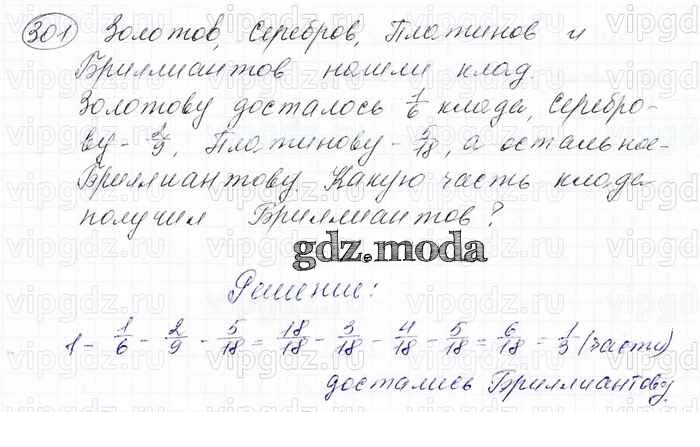 301 Золотов, Серебров, Платинов и
Бриллиантов нашли клад.
Золотову досталось 1/6 клада, Серебро-
ву - 2/9, Платинову - 5/18, а остальное -
Бриллиантову. Какую часть клада
получил Бриллиантов?
gdz.moda
Решение:
1 - 1/6 - 2/9 - 5/18 = 18/18 - 3/18 - 4/18 - 5/18 = 6/18 = 1/3 (части)
достались Бриллиантову